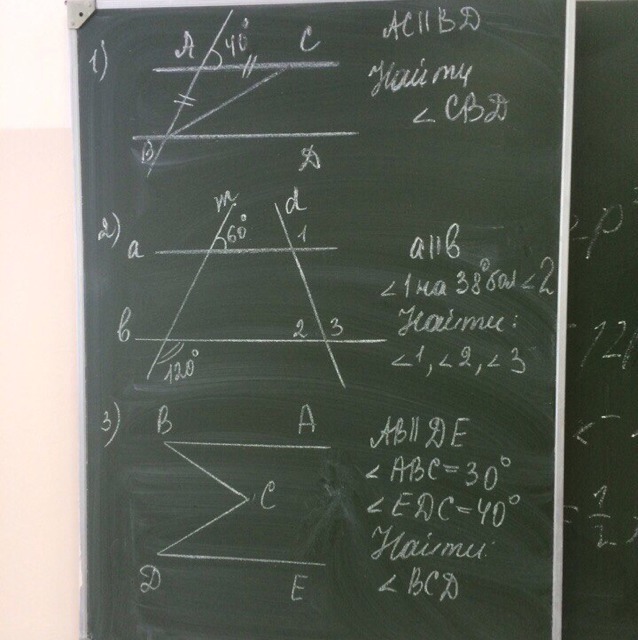 1)
A 40° C
B
D
AC||BD
Найти
∠CBD
2)
m d
a 60° 1
b 2 3
120°
a||b
∠1 на 38° бол ∠2
Найти:
∠1, ∠2, ∠3
3)
B A
C
D E
AB||DE
∠ABC=30°
∠EDC=40°
Найти:
∠BCD